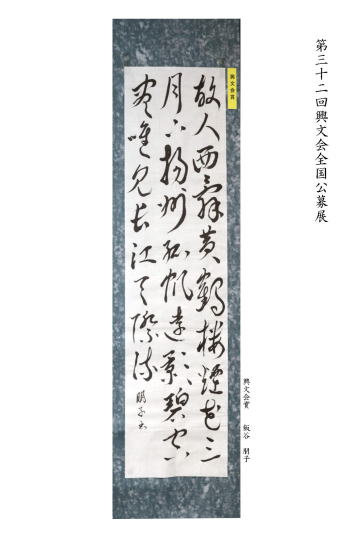 第三十二回興文会全国公募展
興文会賞
故人西辞黄鶴楼煙花三
月下揚州孤帆遠影碧空
尽唯見長江天際流
朋子書
興文会賞 飯谷 朋子